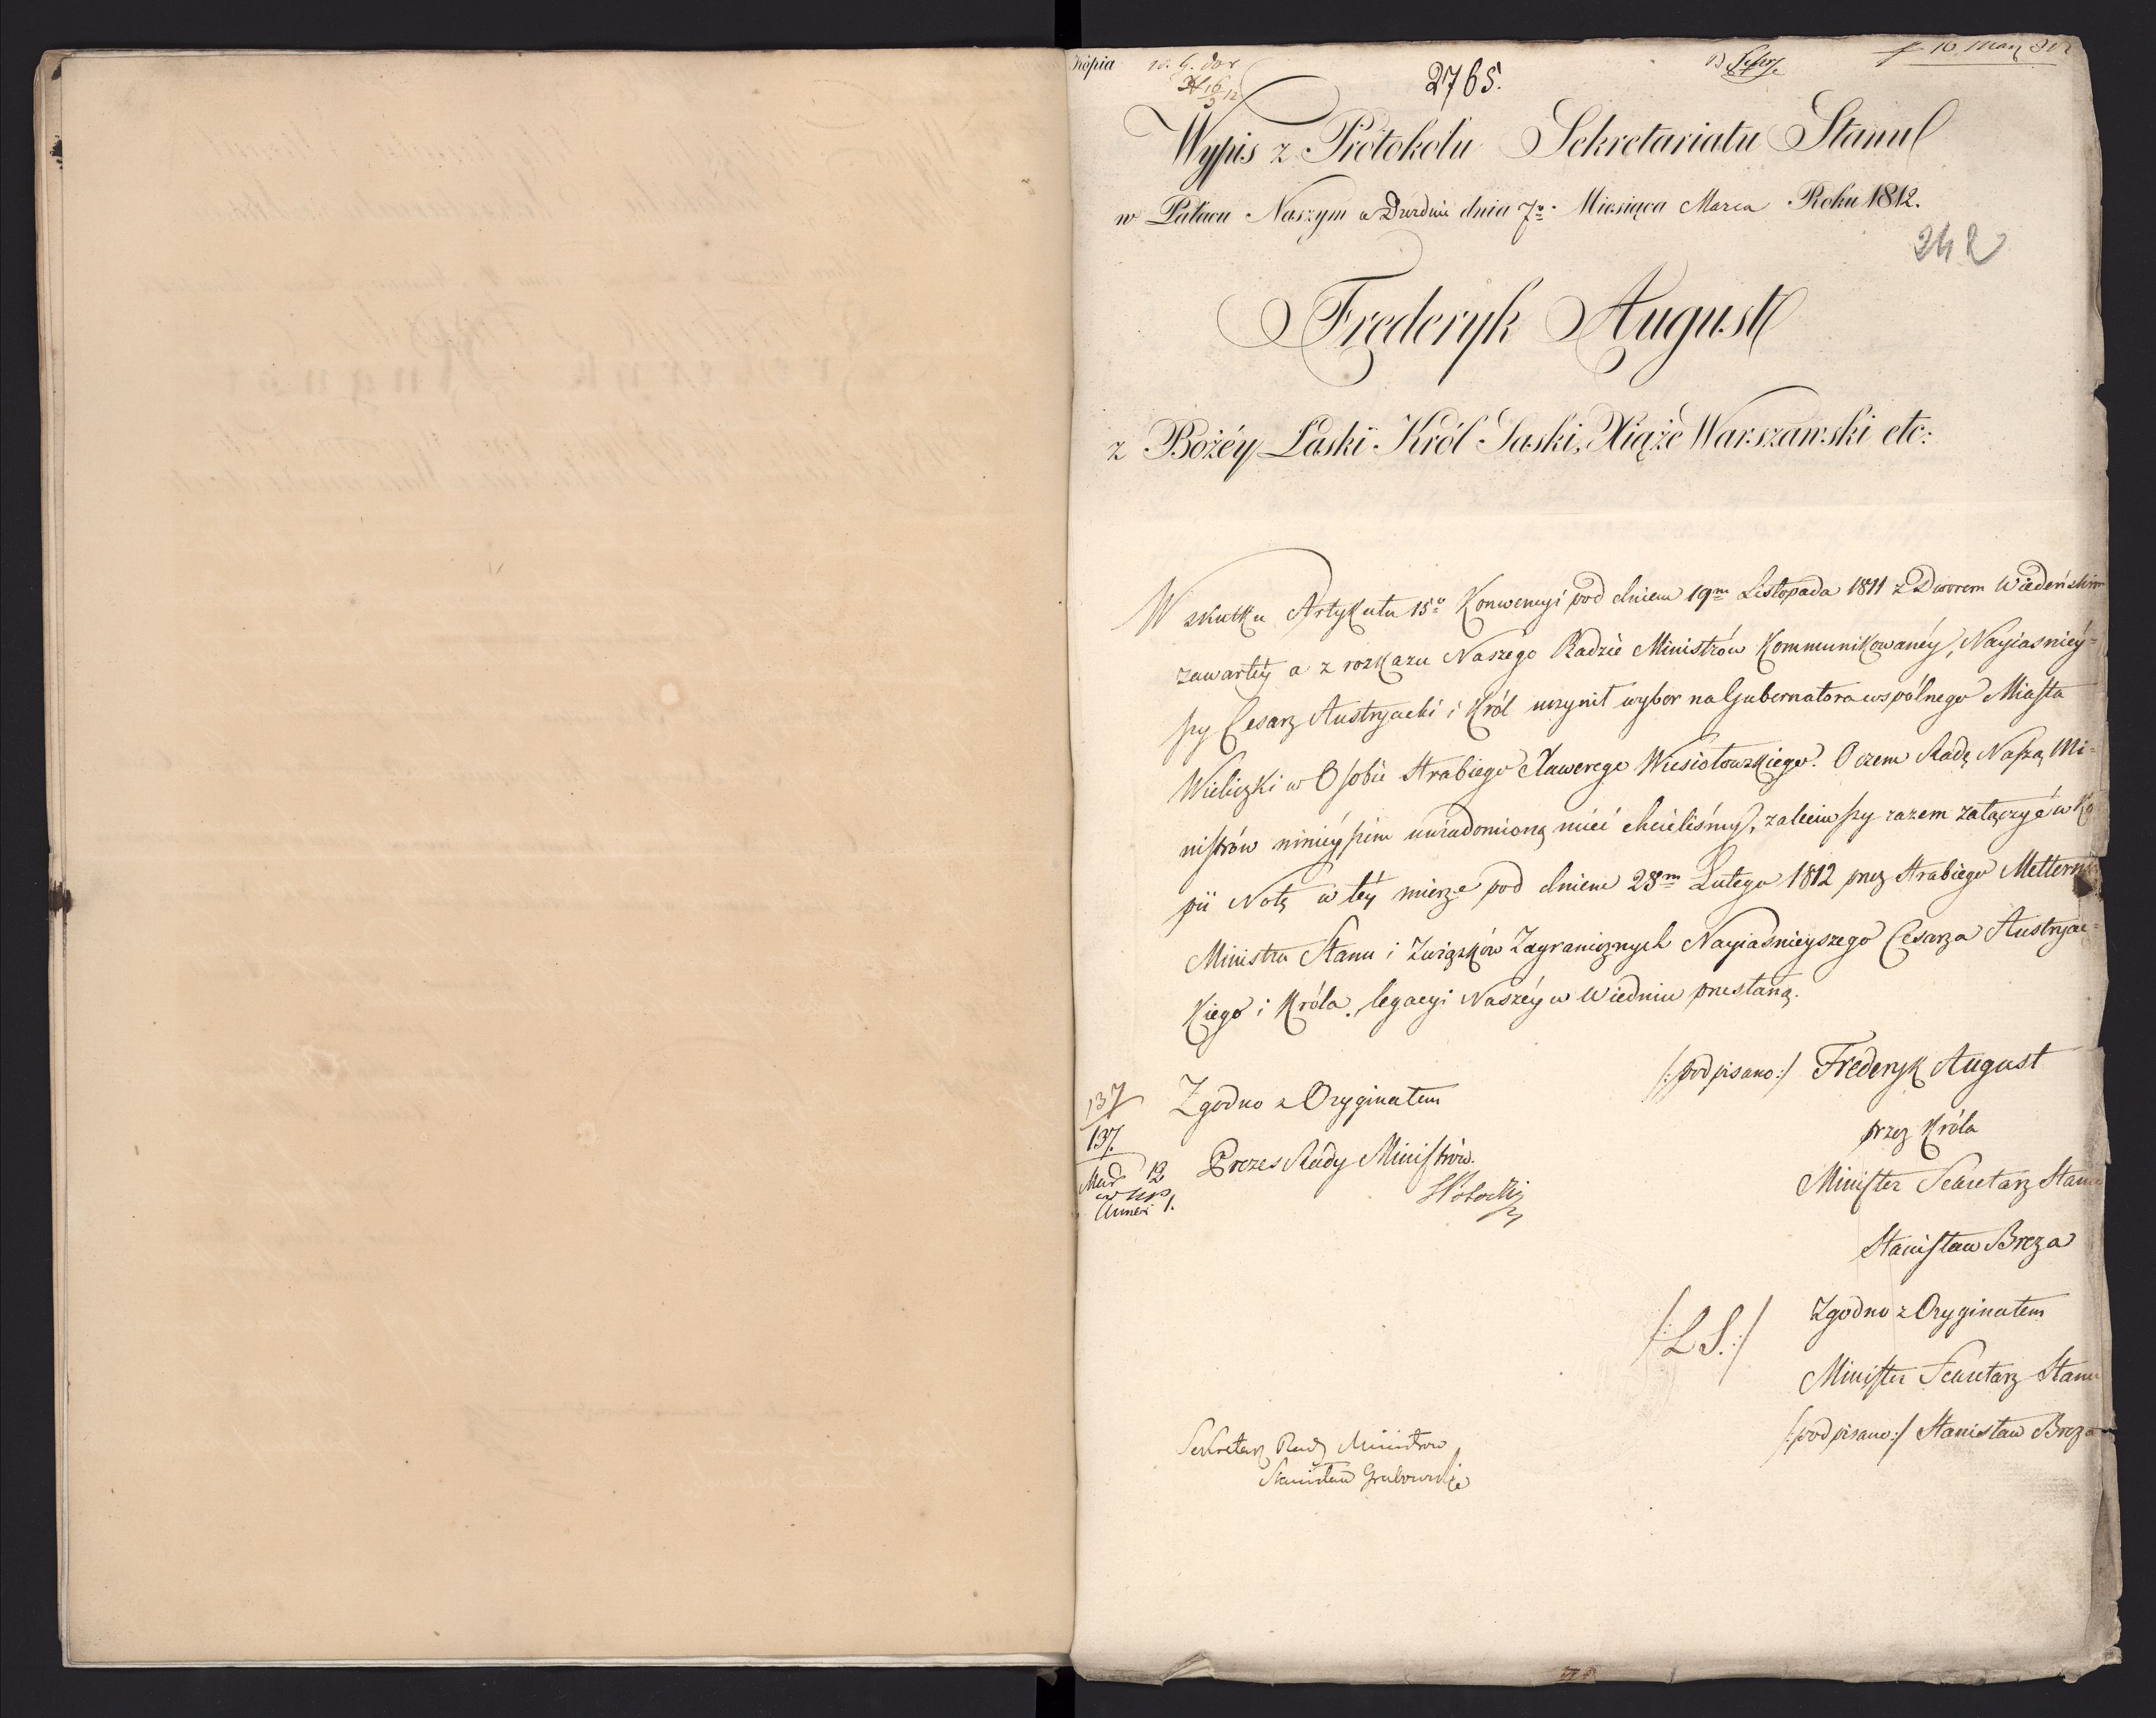 Kópia
2765.
Wypis z Protokołu Sekretariatu Stanu
w Pałacu Naszym w Dreźnie dnia 7º Miesiąca Marca Roku 1812.
242
Frederyk August
z Bożéy Łaski Król Saski, Xiąże Warszawski etc:
W skutku Artykułu 15º Konwencyi pod dniem 19m Listopada 1811 z Dworem Wiedeńskim
zawartéy a z rozkazu Naszego Radzie Ministrów Kommunikowanéy, Nayiasniéy=
szy Cesarz Austryacki i Król uczynił wybor na Gubernatora wspólnego Miasta
Wieliczki w Osobie Hrabiego Xawerego Wiesiołowskiego. O czem Radę Naszą Mi=
nistrów ninieyszém uwiadomioną mieć chcieliśmy, zaleciwszy razem załączyć w Ko
pii Notę w téy mierze pod dniem 28m Lutego 1812 przez Hrabiego Metternich
Ministra Stanu i Związków Zagranicznych Nayiaśnieyszego Cesarza Austryac=
kiego i Króla, legacyi Naszéy w Wiedniu przesłaną.
/:podpisano:/ Frederyk August
przez Króla
Minister Sekretarz Stanu
Stanisław Breza
Zgodno z Oryginałem
Prezes Rady Ministrów.
137
137.
/:L.S.:/
Zgodno z Oryginałem
Minister Sekretarz Stanu
/:podpisano:/ Stanisław Breza
Sekretarz Rady Ministrow
Stanisław Grabowski